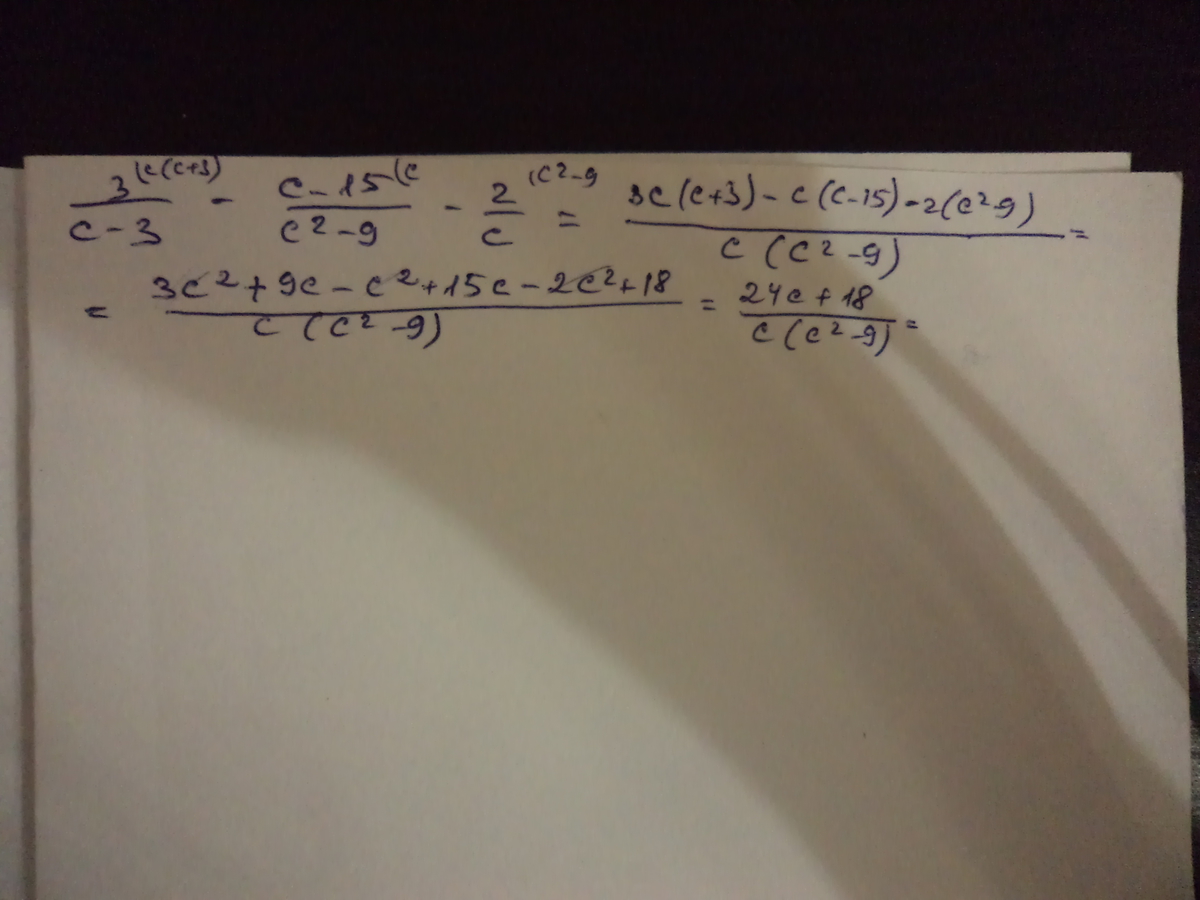 3^(c(c+3) / (c-3) - (c-15)^(c / (c²-9) - 2^(c²-9 / c = (3c(c+3) - c(c-15) - 2(c²-9)) / (c(c²-9)) =
= (3c² + 9c - c² + 15c - 2c² + 18) / (c(c²-9)) = (24c + 18) / (c(c²-9)) =